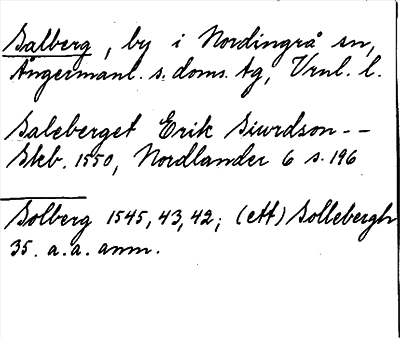 Salberg, by i Nordingrå sn,
Ångermanl. s. doms. tg, Vrnl. l.
Saleberget Erik Siwrdson --
Skb. 1550, Nordlander 6 s. 196
Solberg 1545, 43, 42; (ett) Sollebergh
35. a. a. anm.